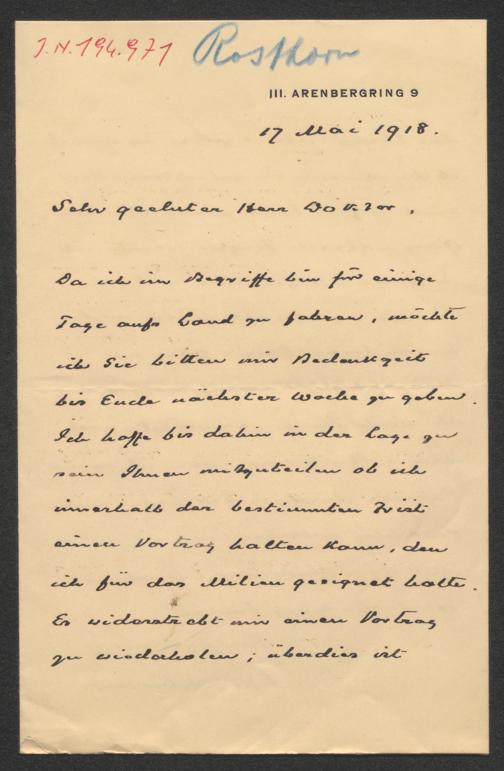 J.N.194.971 Rosthorn
III. ARENBERGRING 9
17 Mai 1918.
Sehr geehrter Herr Doktor,
Da ich im Begriffe bin für einige
Tage aufs Land zu fahren, möchte
ich Sie bitten mir Bedenkzeit
bis Ende nächster Woche zu geben.
Ich hoffe bis dahin in der Lage zu
sein Ihnen mitzuteilen ob ich
innerhalb der bestimmten Frist
einen Vortrag halten kann, den
ich für das Milieu geeignet halte.
Es widerstrebt mir einen Vortrag
zu wiederholen; überdies ist